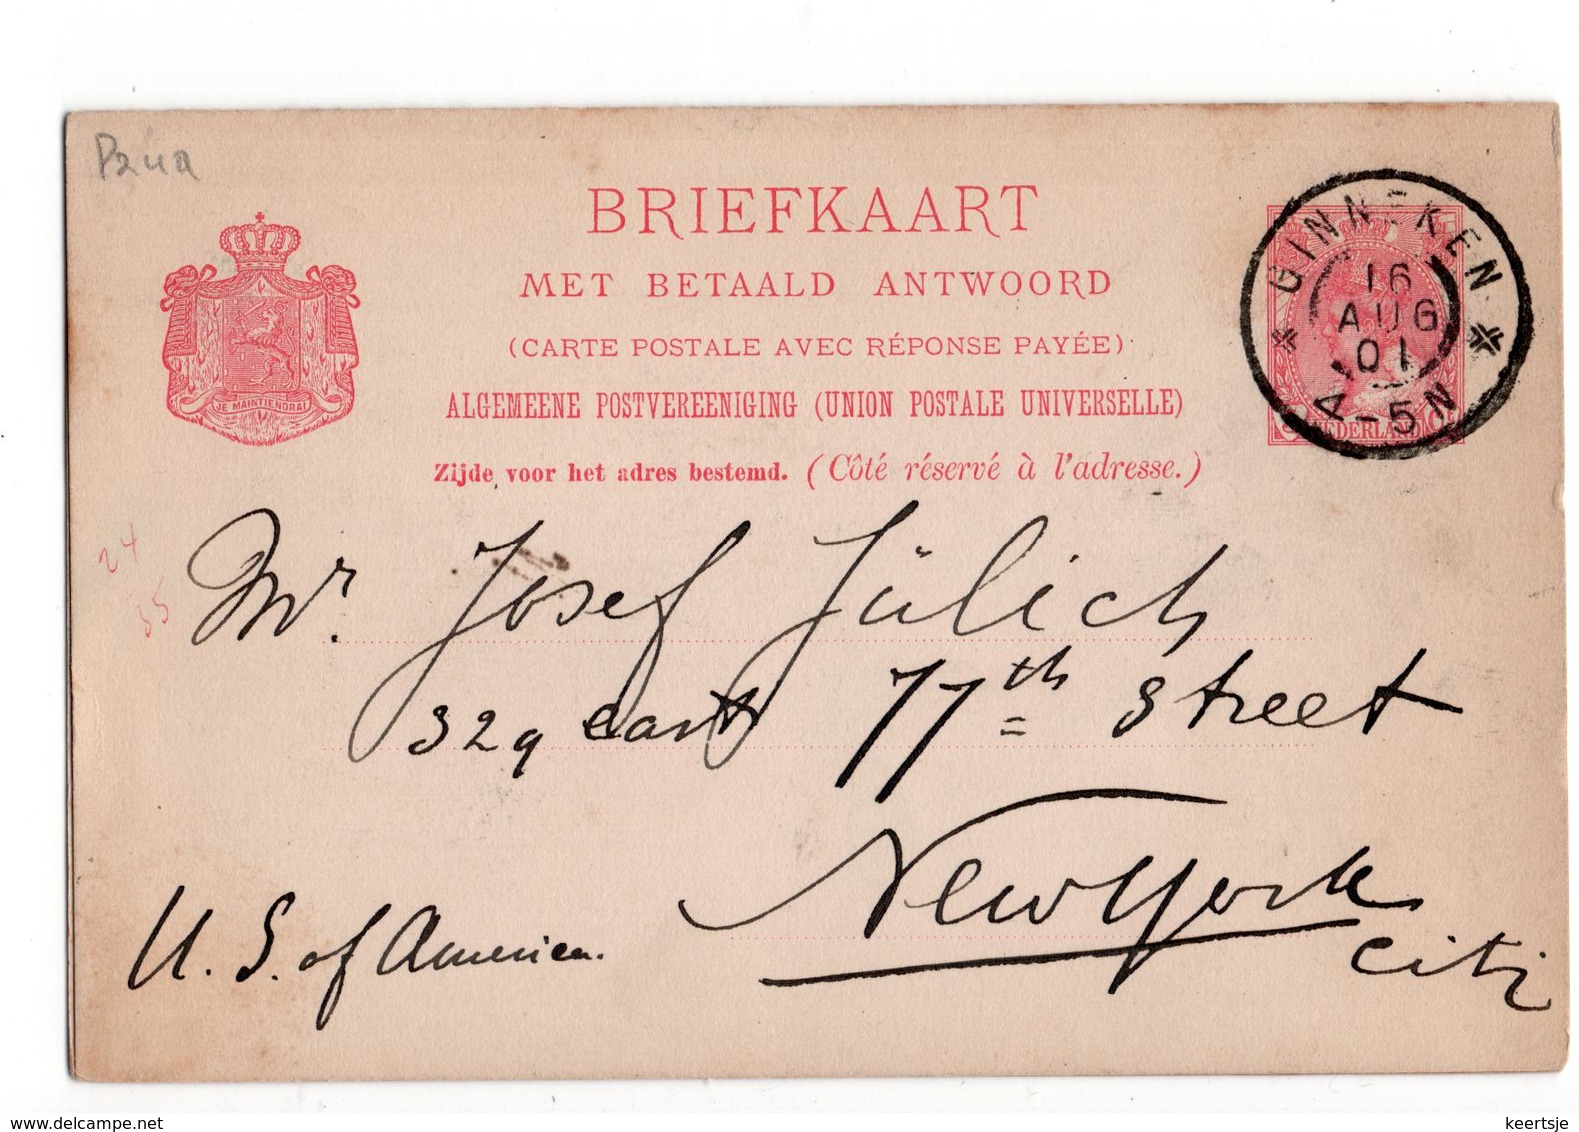 P24a
BRIEFKAART
MET BETAALD ANTWOORD
(CARTE POSTALE AVEC RÉPONSE PAYÉE)
ALGEMEENE POSTVEREENIGING (UNION POSTALE UNIVERSELLE)
Zijde voor het adres bestemd. (Côté réservé à l'adresse.)
JE MAINTIENDRAI
GINNEKEN
16
AUG
01
-5N
NEDERLAND
24
55
Mr. Josef Jülich
329 east 77th Street
New York
City
U. S. of America.
www.delcampe.net
keertsje